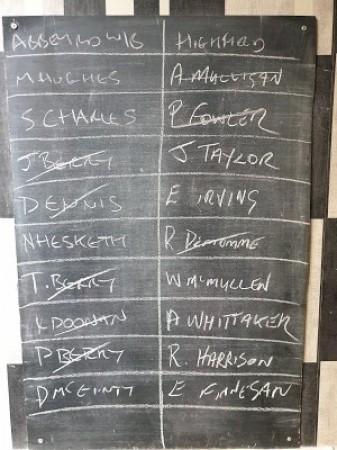 ABBEYLOWIG HIGHFIELD
M HUGHES A MULLIGAN
S CHARLES P FOWLER
J BERRY J TAYLOR
DENNIS E IRVING
N HESKETH R
T. BERRY W McMULLEN
K DOONAN A WHITTAKER
P BERRY R. HARRISON
D McGINTY E FINNESAN